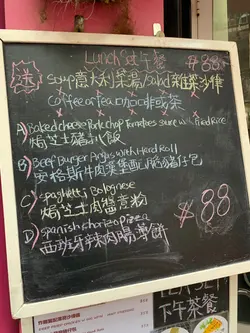 Lunch Set 午餐 $88
Soup意大利菜湯/Salad雜菜沙律
Coffee or Tea
A) Baked cheese Pork chop Tomatoes sauce with Fried Rice
焗芝士豬扒飯
B) Beef Burger Angus with Hard Roll
安格斯牛肉漢堡
C) Spaghetti Bolognese
焗芝士肉醬意粉
$88
D) Spanish chorizo pizza
西班牙辣肉腸薄餅
下午茶餐